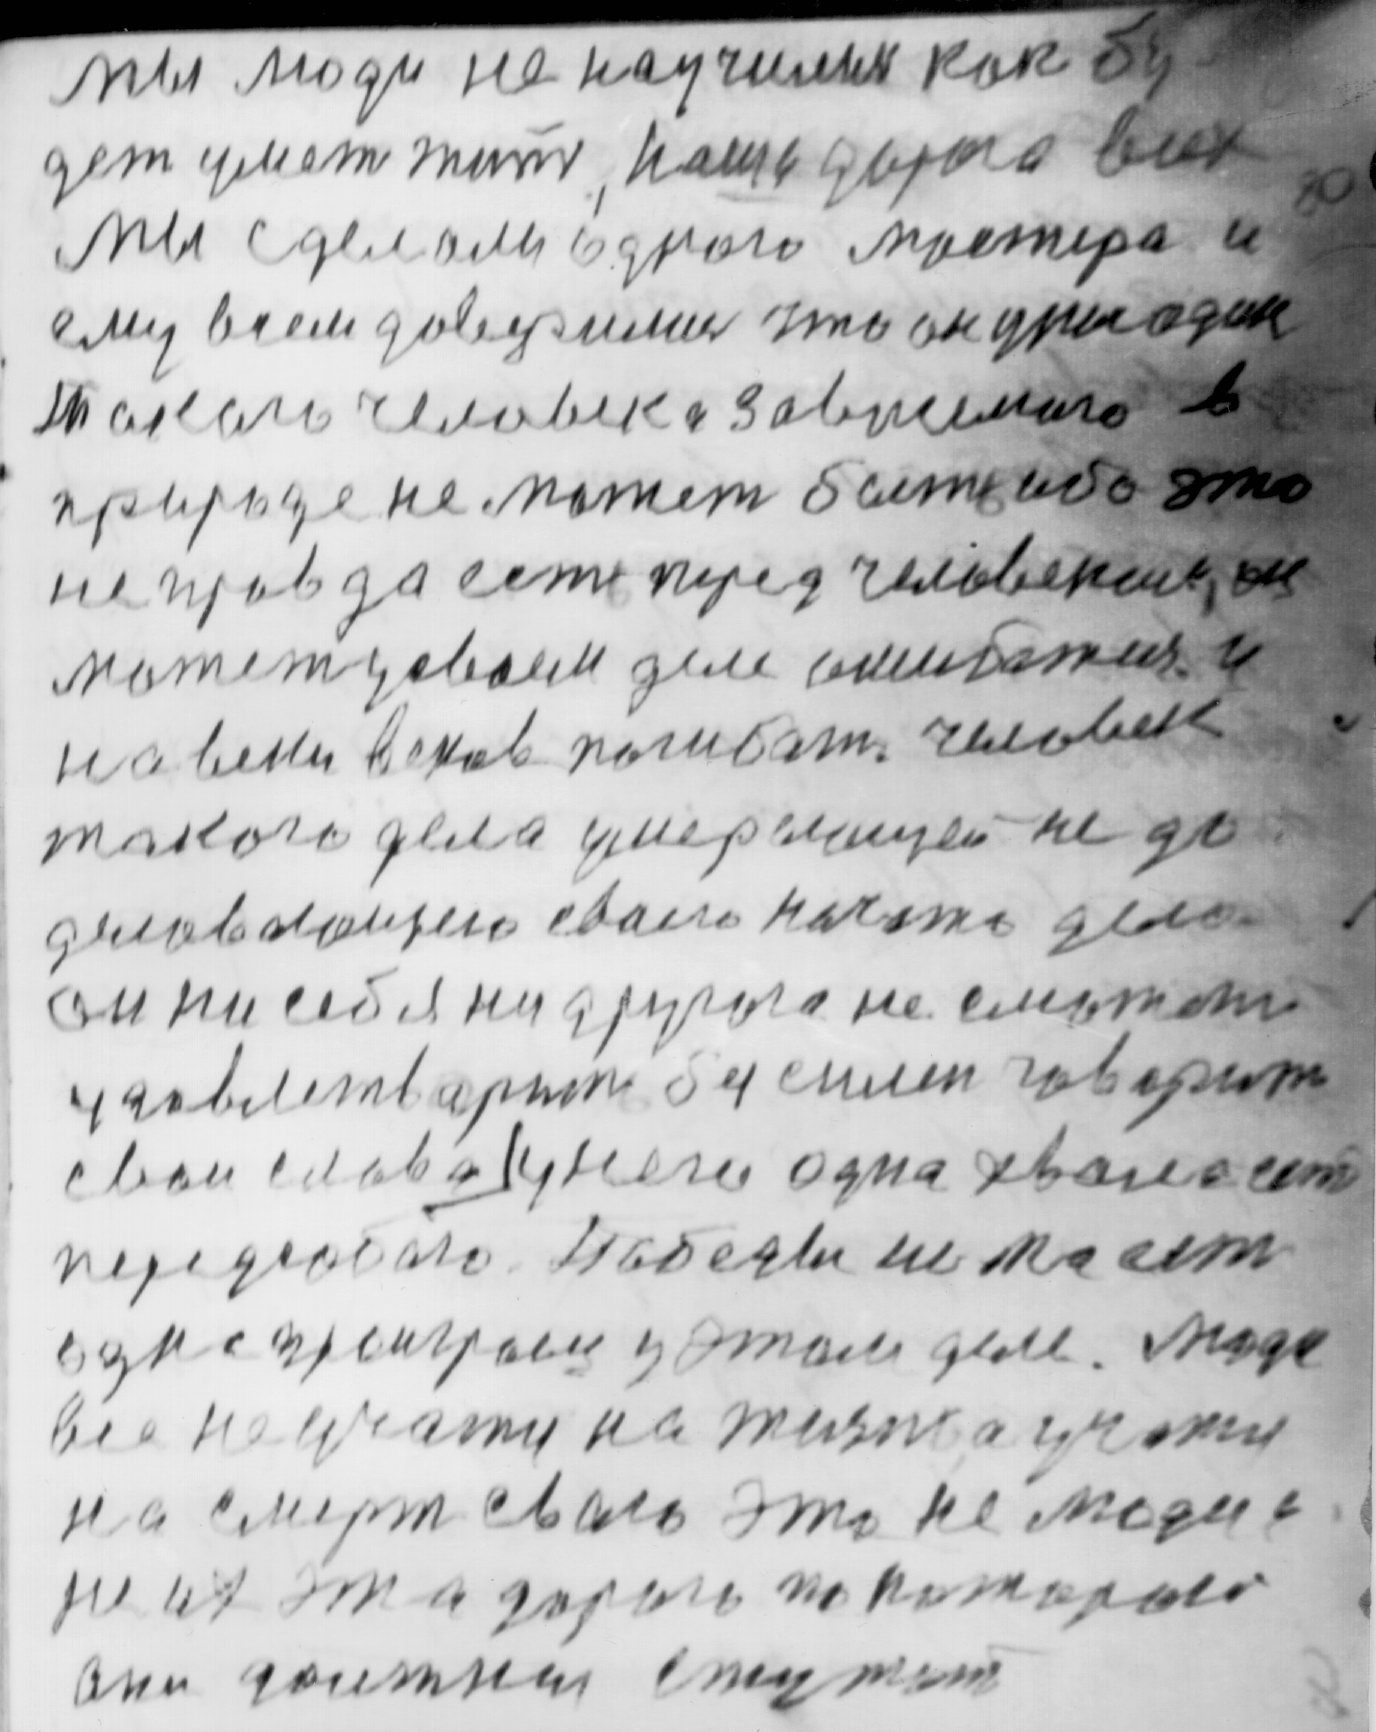 Мы люди не научились как бу
дет умет жить, наша дорога всех
Мы сделали одного мастера и
ему всем доверились что он у нас один
такого человека зависемого в
природе не может бытть ибо это
не правда есть перед человеком, он
может у своем деле ошибатися и
на веки веков погибать. человек
такого дела умерзающей не до
делавающего своего начато дело
он ни себя ни другого не сможеть
удовлетварить бессилен говорить
свои слова у него одна хвала есть
перед собою. Победы не ма ест
одна проиграш у этом деле. Люди
все не учатн на жизнь а учатн
на смерт свою это не люди а
не их эта дорога по которой
они должныи ступать